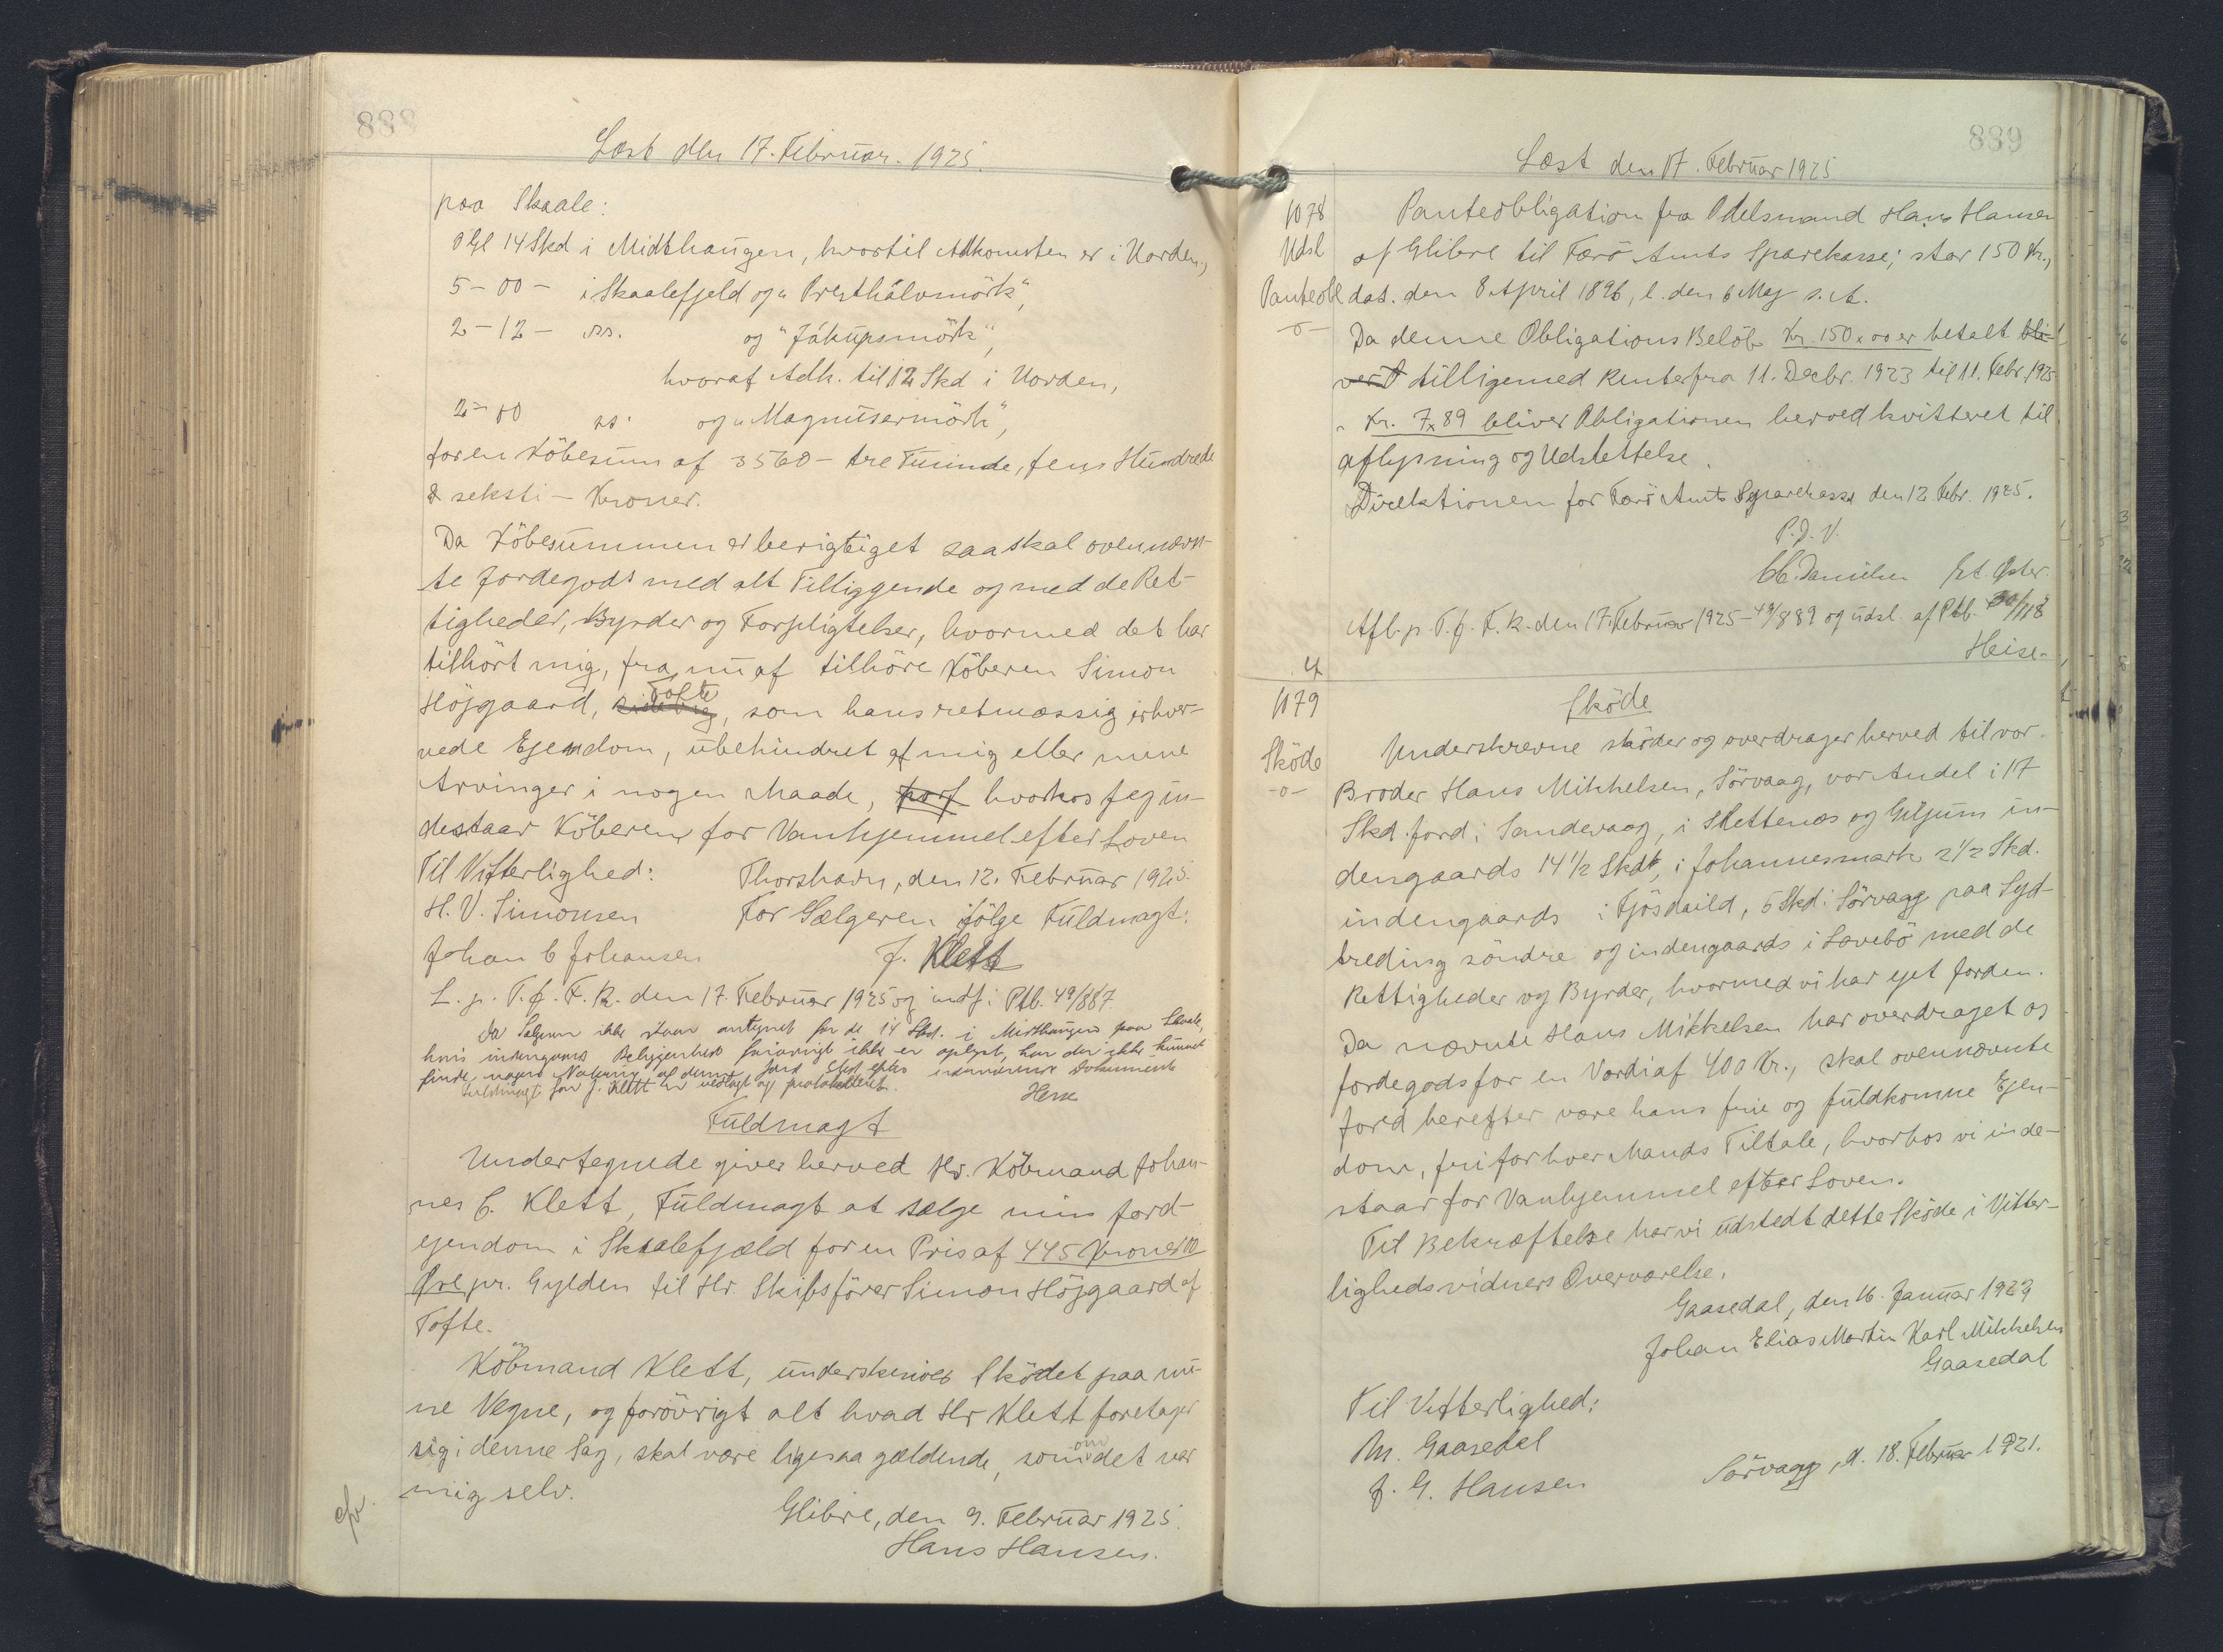 888
Læst den 17. Februar. 1925.
paa Skaale:
0 Gl 14 Skd i Midthaugen, hvortil Adkomsten er i Uorden,
5 - 00 - i Skaalefjeld og "Presthálvmörk",
2 - 12 - ss. og "Jákupsmörk",
hvoraf Adk. til 12 Skd i Uorden,
2 - 00 ss. og "Magnusermörk",
for en Köbesum af 3560 - tre Tusinde, fem Hundrede
& seksti - Kroner.
Da Köbesummen er berigtiget saa skal ovennævn-
te Jordegods med alt Tilliggende og med de Ret-
tigheder, Byrder og Forpligtelser, hvormed det har
tilhört mig, fra nu af tilhöre Köberen Simon
Höjgaard, Tofte, som hans retmæssig erhver-
vede Ejendom, ubehindret af mig eller mine
Arvinger i nogen Maade, hvorhos jeg in-
destaar Köberen for Vanhjemmel efter Loven
Til Vitterlighed: Thorshavn, den 12. Februar 1925.
H. V. Simonsen For Sælgeren ifölge Fuldmagt:
Johan C Johansen J. Klett
L. p. T. f. F. R. den 17. Februar 1925 og indf i Ptb. 49/887.
Da Sælgeren ikke staar antegnet for de 14 Skd. i Midthaugen paa Skaale,
hvis indengaards Beliggenhed forövrigt ikke er oplyst, har der ikke kunnet
finde nogen Notering af denne Jord Sted efter nærværende Dokument
Fuldmagt for J. Klett er vedlagt og protokolleret.
Heise
Fuldmagt
Undertegnede giver herved Hr. Köbmand Johan-
nes C. Klett, Fuldmagt at sælge min Jord-
ejendom i Skaalefjæld for en Pris af 445 Kroner 00
Öre pr. Gylden til Hr. Skibsförer Simon Höjgaard af
Tofte.
Köbmand Klett, underskriver Sködet paa mi-
ne Vegne, og forövrigt alt hvad Hr Klett foretager
sig i denne Sag, skal være ligesaa gældende, som om det var
mig selv.
Glibre, den 9. Februar 1925.
Hans Hansen.
889
Læst den 17. Februar 1925
1078
Udsl
Panteobl
-o-
Panteobligation fra Odelsmand Hans Hansen
af Glibre til Færö Amts Sparekasse; stor 150 Kr.,
dat. den 8 April 1896, l. den 6 Maj s. A.
Da denne Obligations Belöb Kr. 150 x 00 er betalt bli-
vert tilligemed Renter fra 11. Decbr. 1923 til 11. Febr. 1925
Kr. 7 x 89 bliver Obligationen herved kvitteret til
aflysning og Udslettelse.
Direktionen for Færö Amts Sparekasse den 12 Febr. 1925.
P. D. V.
C C. Danielsen
Afl. p. T. f. F. R. den 17. Februar 1925 - 49/889 og udsl. af Ptb.
Heise
1079
Sköde
-o-
Sköde
Underskrevne sköder og overdrager herved til vor
Broder Hans Mikkelsen, Sörvaag, vor Andel i 17
Skd. Jord i Sandevaag, i Slettenæs og Giljum in-
dengaards 14 1/2 Skd, i Johannesmark 2 1/2 Skd.
indengaards i Fjósdaild, 5 Skd. i Sörvaag paa Syd-
treding söndre og indengaards i Lavebö med de
Rettigheder og Byrder, hvormed vi har ejet Jorden.
Da nævnte Hans Mikkelsen har overdraget os
Jordegods for en Værdi af 400 Kr., skal ovennævnte
Jord herefter være hans frie og fuldkomne Ejen-
dom, fri for hver Mands Tiltale, hvorhos vi inde-
staar for Vanhjemmel efter Loven.
Til Bekræftelse har vi udstedt dette Sköde i Vitter-
lighedsvidners Overværelse.
Gaasedal, den 16. Januar 1929
Johan Elias Martin Karl Mikkelsen
Gaasedal
Til Vitterlighed:
M. Gaasedal
J. G. Hansen Sörvaag, d. 18. Februar 1921.